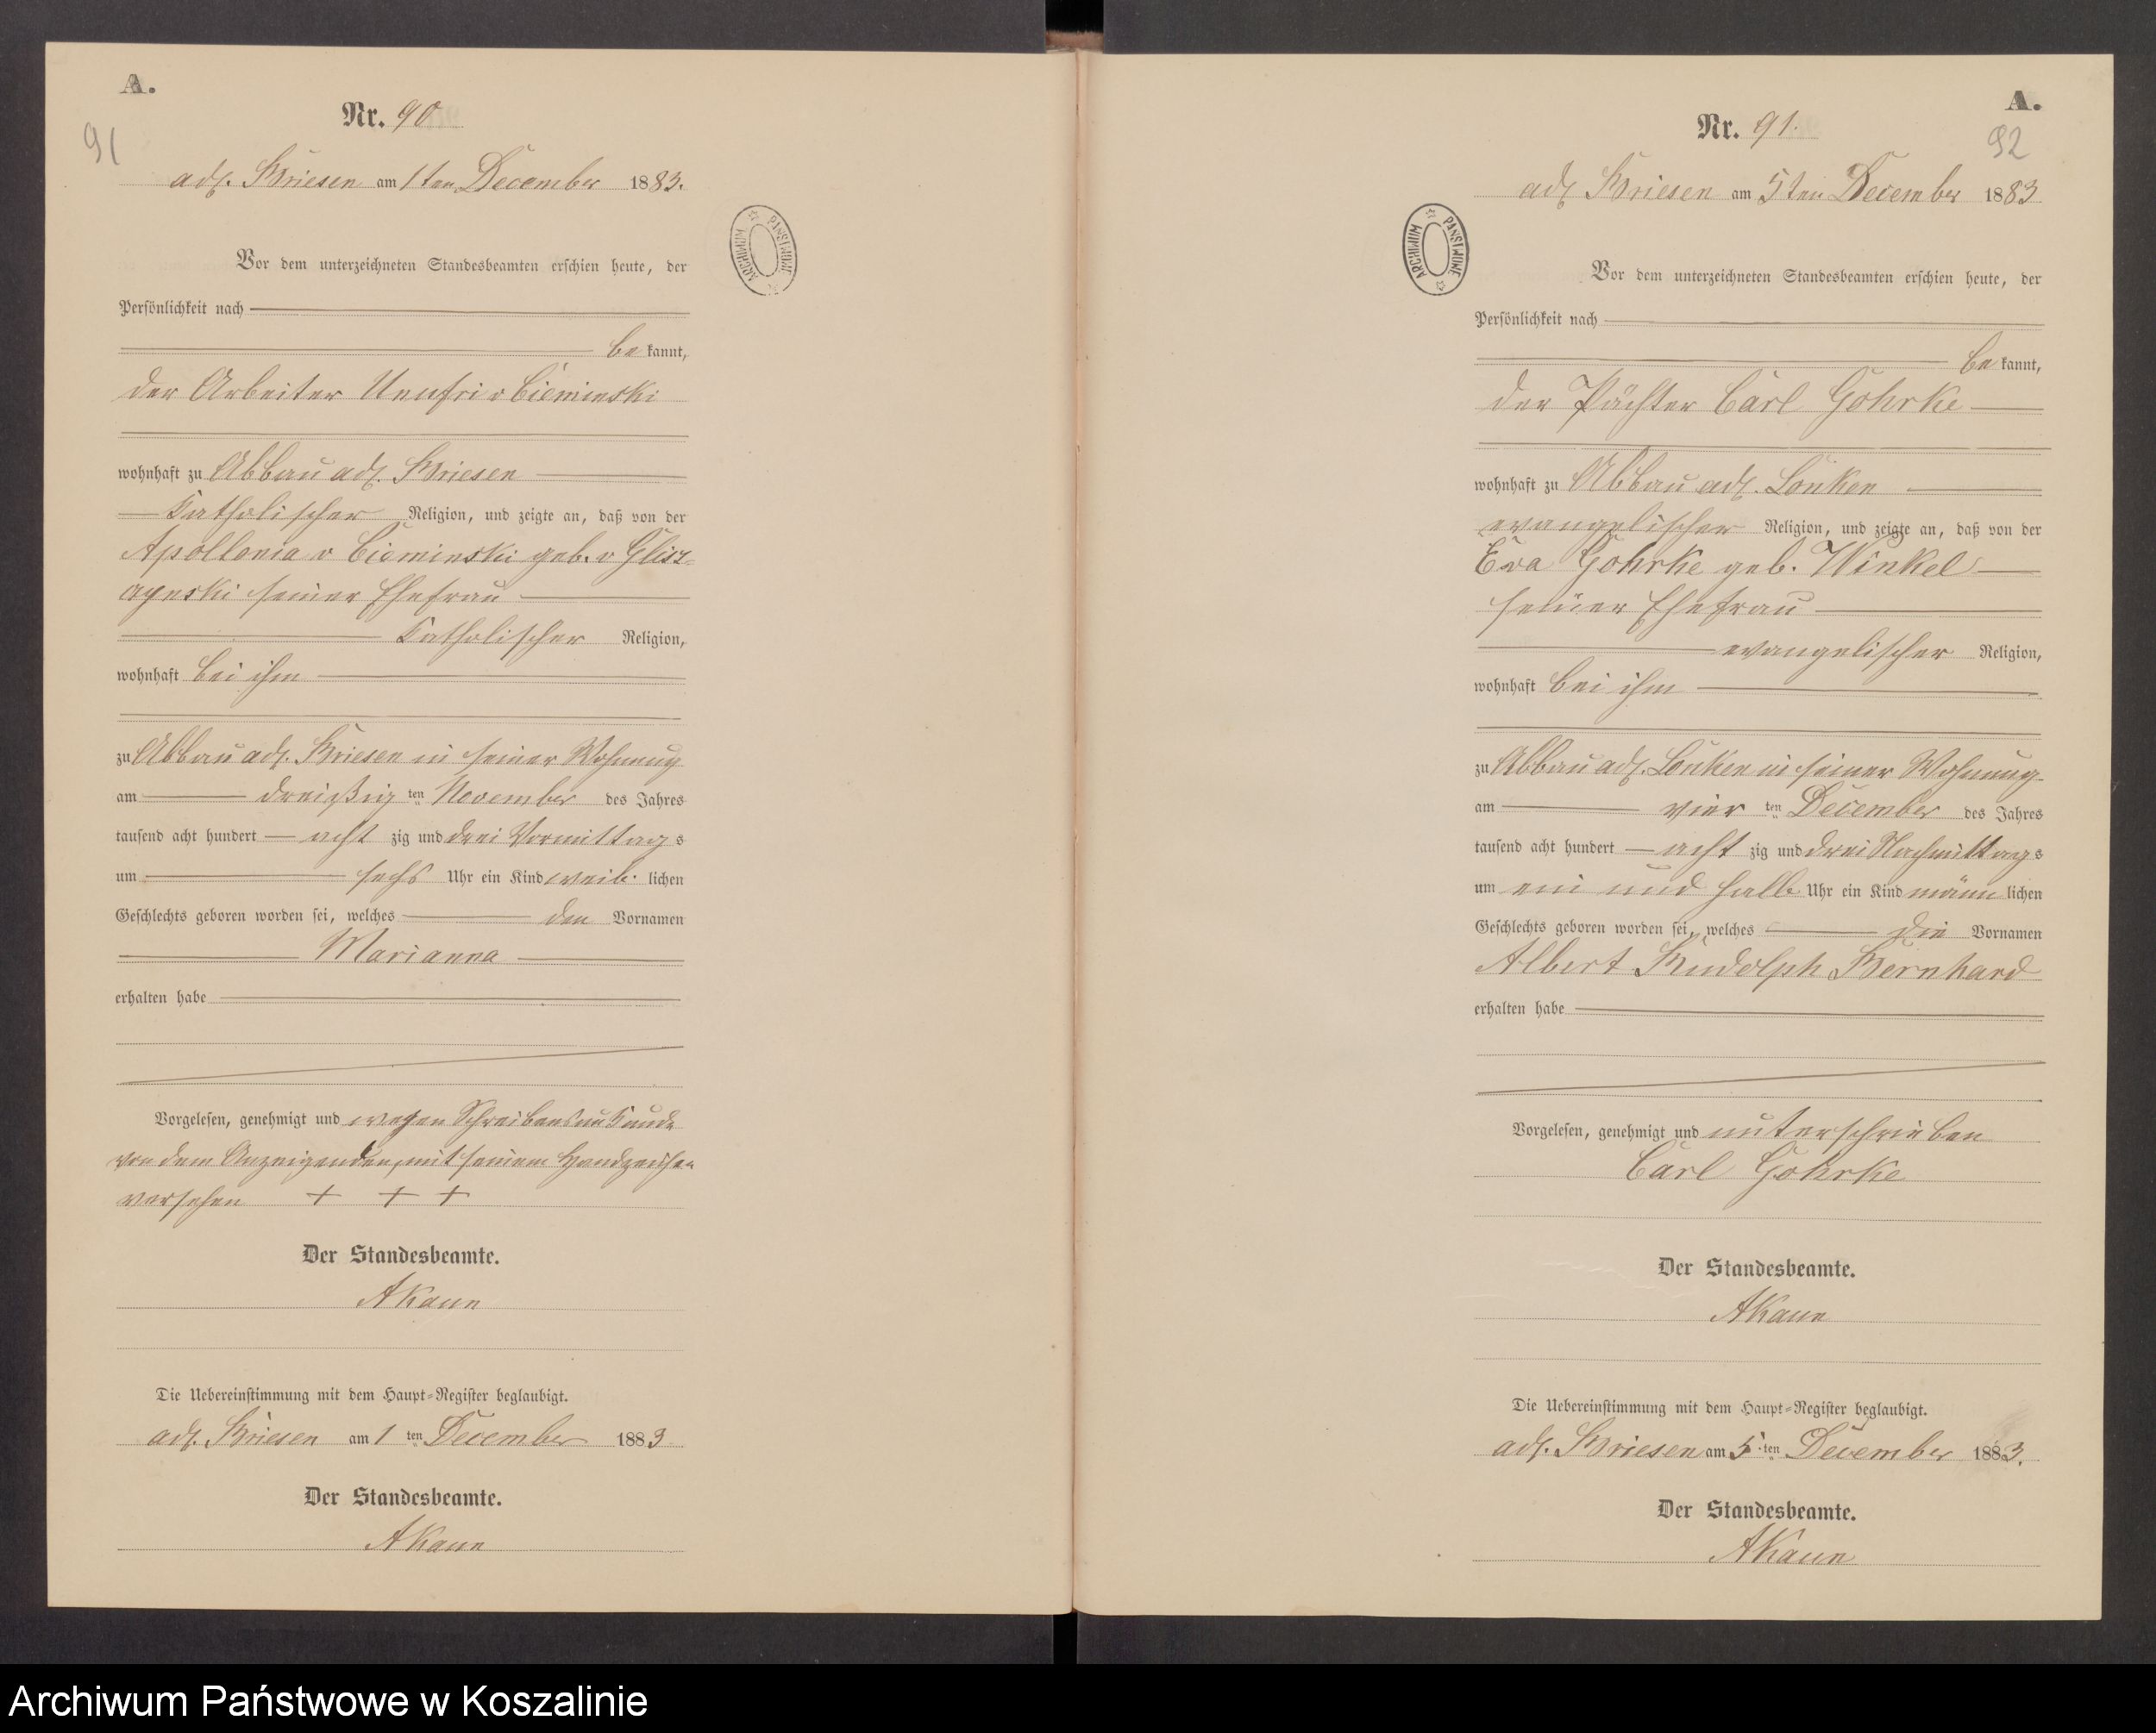 A.
91
Nr. 90
adl. Briesen am 1ten December 1883.
ARCHIWUM PAŃSTWOWE
Vor dem unterzeichneten Standesbeamten erschien heute, der
Persönlichkeit nach
be kannt,
der Arbeiter v Cieminski
wohnhaft zu Abbau adl. Briesen
katholischer Religion, und zeigte an, daß von der
Apollonia v Cieminski geb. v Glisz-
czynski seiner Ehefrau
katholischer Religion,
wohnhaft bei ihm
zu Abbau adl. Briesen in seiner Wohnung
am dreißig ten November des Jahres
tausend acht hundert acht zig und drei Vormittags
um sechs Uhr ein Kind weib. lichen
Geschlechts geboren worden sei, welches den Vornamen
Marianna
erhalten habe
Vorgelesen, genehmigt und wegen Schreibensunkunde
von dem Anzeigenden, mit seinem Handzeichen
versehen + + +
Der Standesbeamte.
AKaun
Die Uebereinstimmung mit dem Haupt-Register beglaubigt.
adl. Briesen am 1 ten December 1883
Der Standesbeamte.
AKaun
A.
92
Nr. 91.
adl Briesen am 5ten December 1883
ARCHIWUM PAŃSTWOWE
Vor dem unterzeichneten Standesbeamten erschien heute, der
Persönlichkeit nach
be kannt,
der Pächter Carl Gohrke
wohnhaft zu Abbau adl. Lonken
evangelischer Religion, und zeigte an, daß von der
Eva Gohrke geb. Winkel
seiner Ehefrau
evangelischer Religion,
wohnhaft bei ihm
zu Abbau adl. Lonken in seiner Wohnung
am vier ten December des Jahres
tausend acht hundert acht zig und drei Nachmittags
um ein und halb Uhr ein Kind männ lichen
Geschlechts geboren worden sei, welches die Vornamen
Albert Rudolph Bernhard
erhalten habe
Vorgelesen, genehmigt und unterschrieben
Carl Gohrke
Der Standesbeamte.
AKaun
Die Uebereinstimmung mit dem Haupt-Register beglaubigt.
adl. Briesen am 5 ten December 1883.
Der Standesbeamte.
AKaun
Archiwum Państwowe w Koszalinie